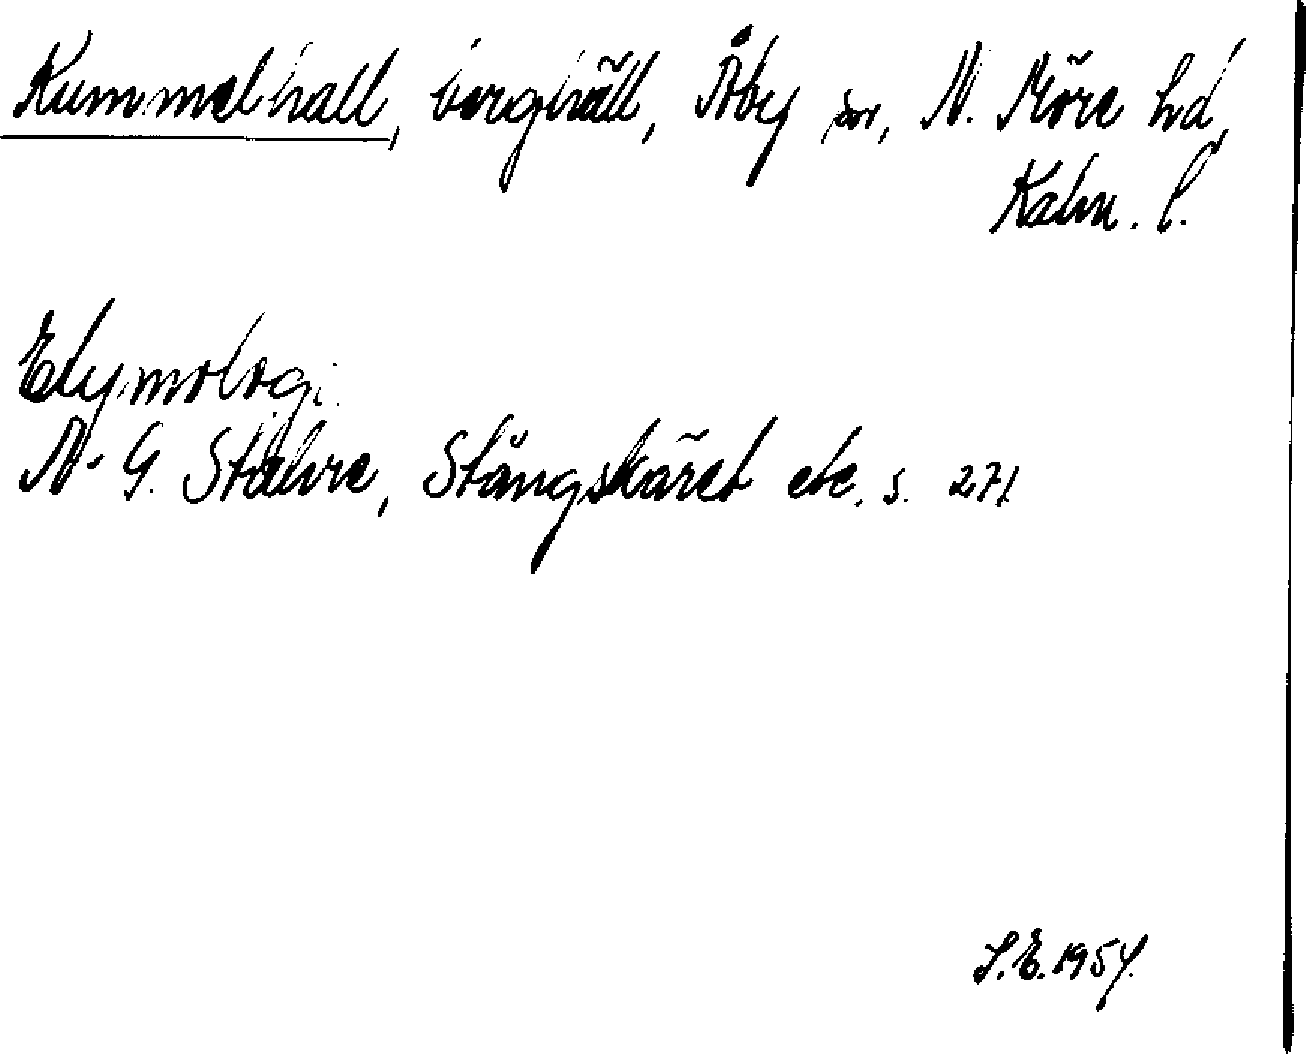 Kummelhall, berghäll, Åby sn, N. Möre hd,
Kalm. l.
Etymologi.
N. G. Stahre, Stångskäret etc. s. 271.
S.E. 1954.